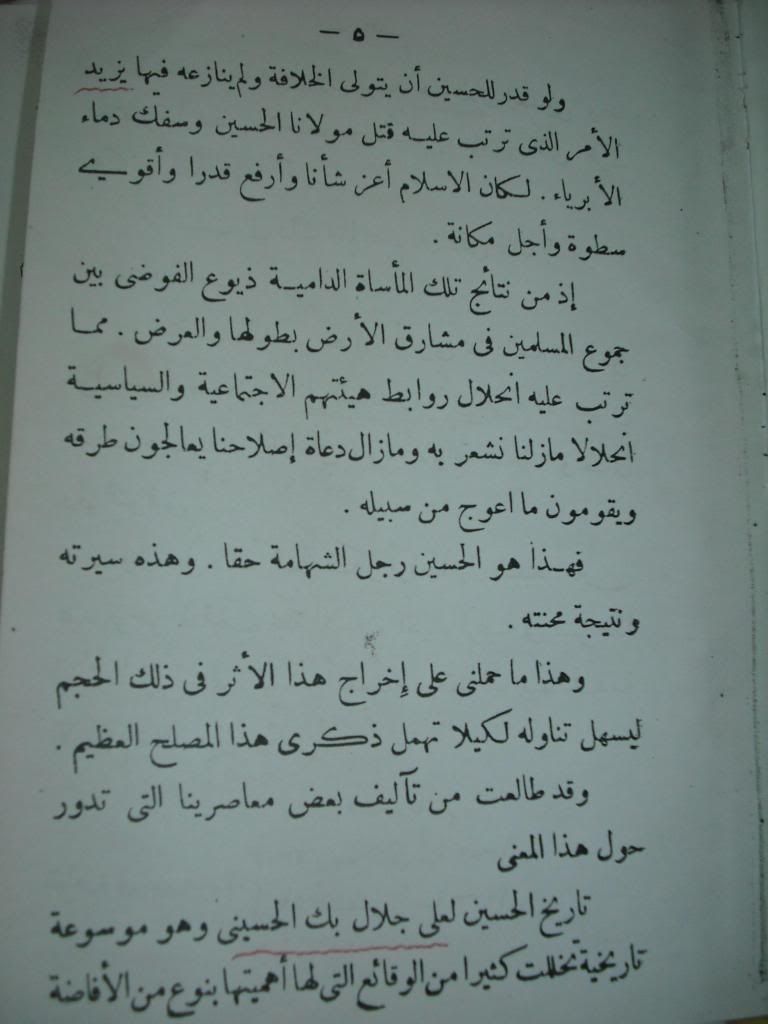 — ٥ —
ولو قدر للحسين أن يتولى الخلافة ولم ينازعه فيها يزيد
الأمر الذى ترتب عليه قتل مولانا الحسين وسفك دماء
الأبرياء . لكان الاسلام أعز شأنا وأرفع قدرا وأقوى
سطوة وأجل مكانة .
إذ من نتائج تلك المأساة الدامية ذيوع الفوضى بين
جموع المسلمين فى مشارق الأرض بطولها والعرض . مما
ترتب عليه انحلال روابط هيئتهم الاجتماعية والسياسية
انحلالا مازلنا نشعر به ومازال دعاة إصلاحنا يعالجون طرقه
ويقومون ما اعوج من سبيله .
فهذا هو الحسين رجل الشهامة حقا . وهذه سيرته
ونتيجة محنته .
وهذا ما حملنى على إخراج هذا الأثر فى ذلك الحجم
ليسهل تناوله لكيلا تهمل ذكرى هذا المصلح العظيم .
وقد طالعت من تآليف بعض معاصرينا التى تدور
حول هذا المعنى
تاريخ الحسين لعلى جلال بك الحسينى وهو موسوعة
تاريخية تخللت كثيرا من الوقائع التى لها أهميتها بنوع من الأفاضة